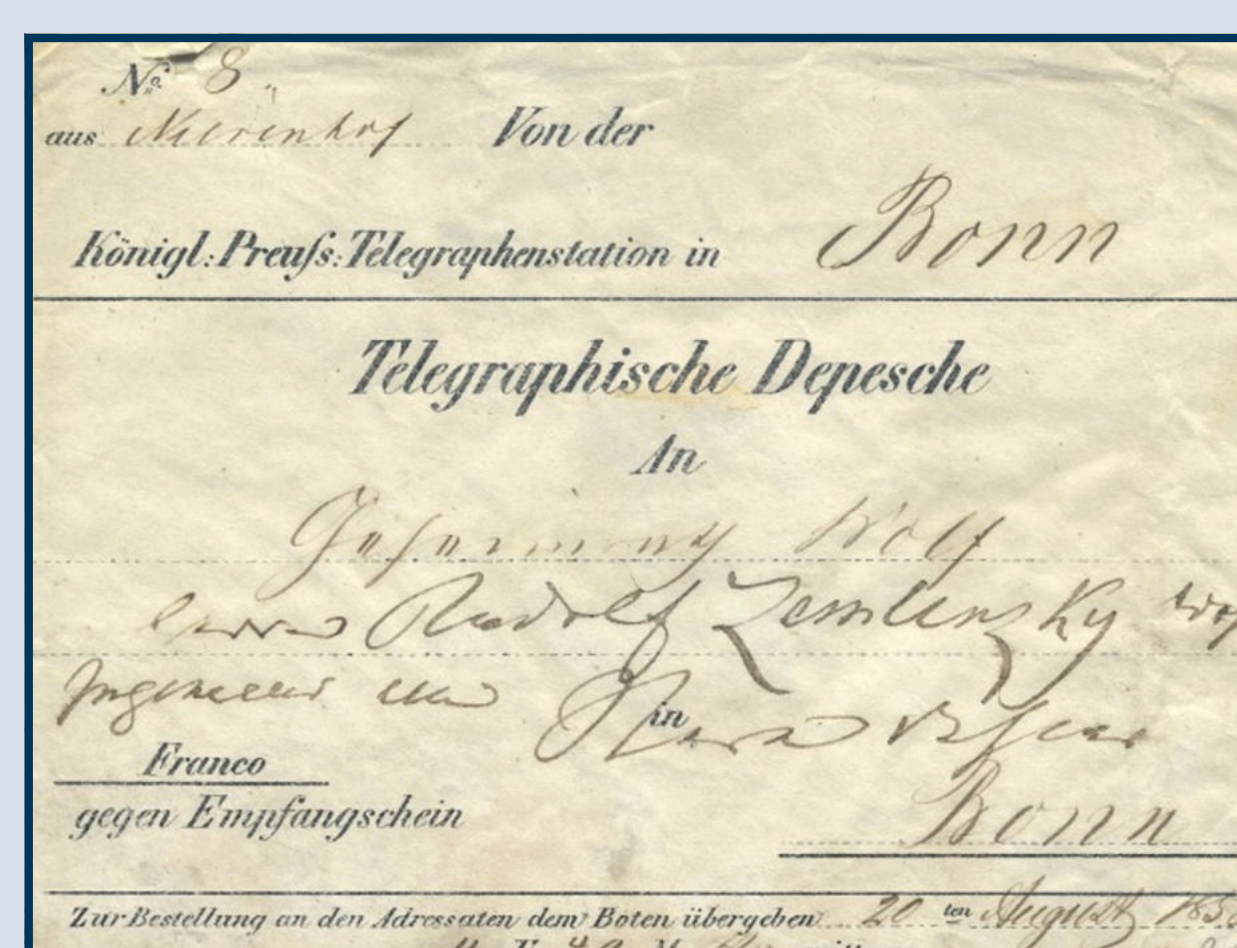 No. 8.
aus Nierenhof Von der
Königl: Preuſs: Telegraphenstation in Bonn
Telegraphische Depesche
An
Wolf
Rudolf Zemlinszky
Ingenieur
in
Franco
Bonn
gegen Empfangschein
Zur Bestellung an den Adressaten dem Boten übergeben 20 ten August